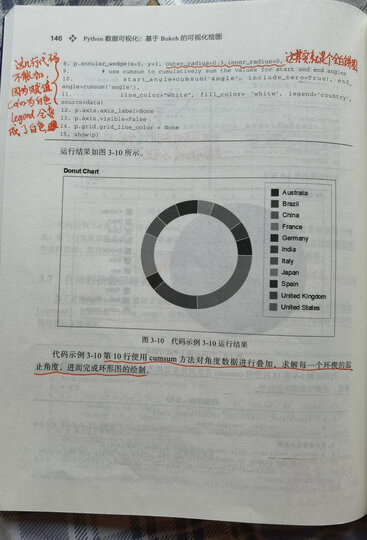 146 Python 数据可视化：基于 Bokeh 的可视化绘图
这几行代码
不能加
因为赋值
为白色
legend 会变
成了白色
8. p.annular_wedge(x=0, y=1, outer_radius=0.3, inner_radius=0,
9. # use cumsum to cumulatively sum the values for start and end angles
10. start_angle=cumsum('angle', include_zero=True), end_
angle=cumsum('angle'),
11. line_color="white", fill_color= 'white', legend='country',
source=data)
12. p.axis.axis_label=None
13. p.axis.visible=False
14. p.grid.grid_line_color = None
15. show(p)
运行结果如图 3-10 所示。
Donut Chart
Australia
Brazil
China
France
Germany
India
Italy
Japan
Spain
United Kingdom
United States
图 3-10 代码示例 3-10 运行结果
代码示例 3-10 第 10 行使用 cumsum 方法对角度数据进行叠加，求解每一个环楔的起
止角度，进而完成环形图的绘制。